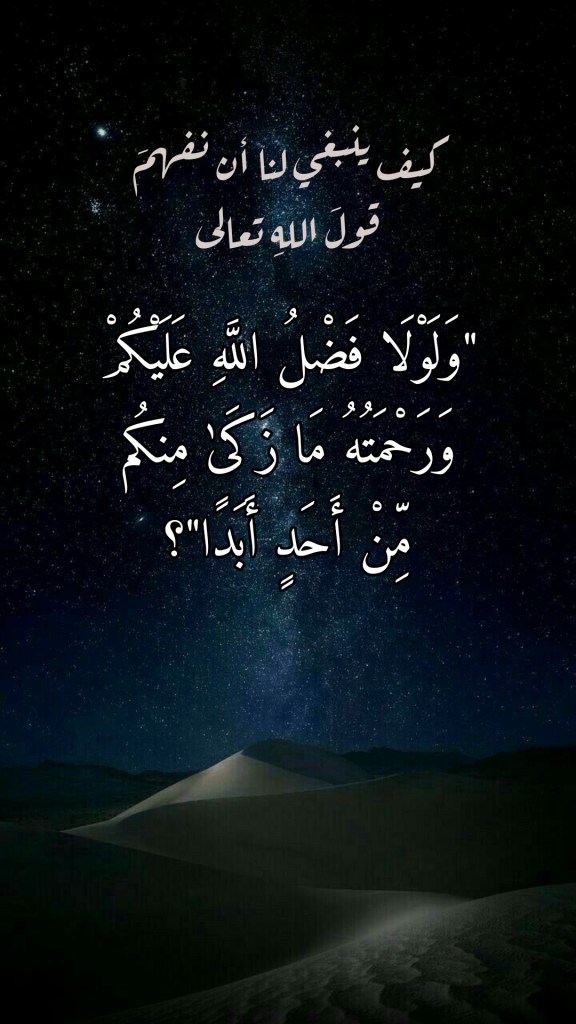 كيف ينبغي لنا أن نفهمَ
قولَ اللهِ تعالى
"وَلَوْلَا فَضْلُ اللَّهِ عَلَيْكُمْ
وَرَحْمَتُهُ مَا زَكَىٰ مِنكُم
مِّنْ أَحَدٍ أَبَدًا"؟